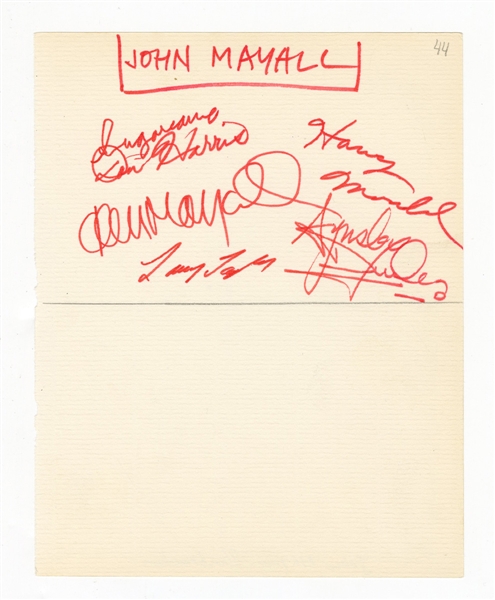 JOHN MAYALL
44
Sugarcane
Don Harris
Harvey
Mandel
John Mayall
Aynsley
Dunbar
Larry Taylor